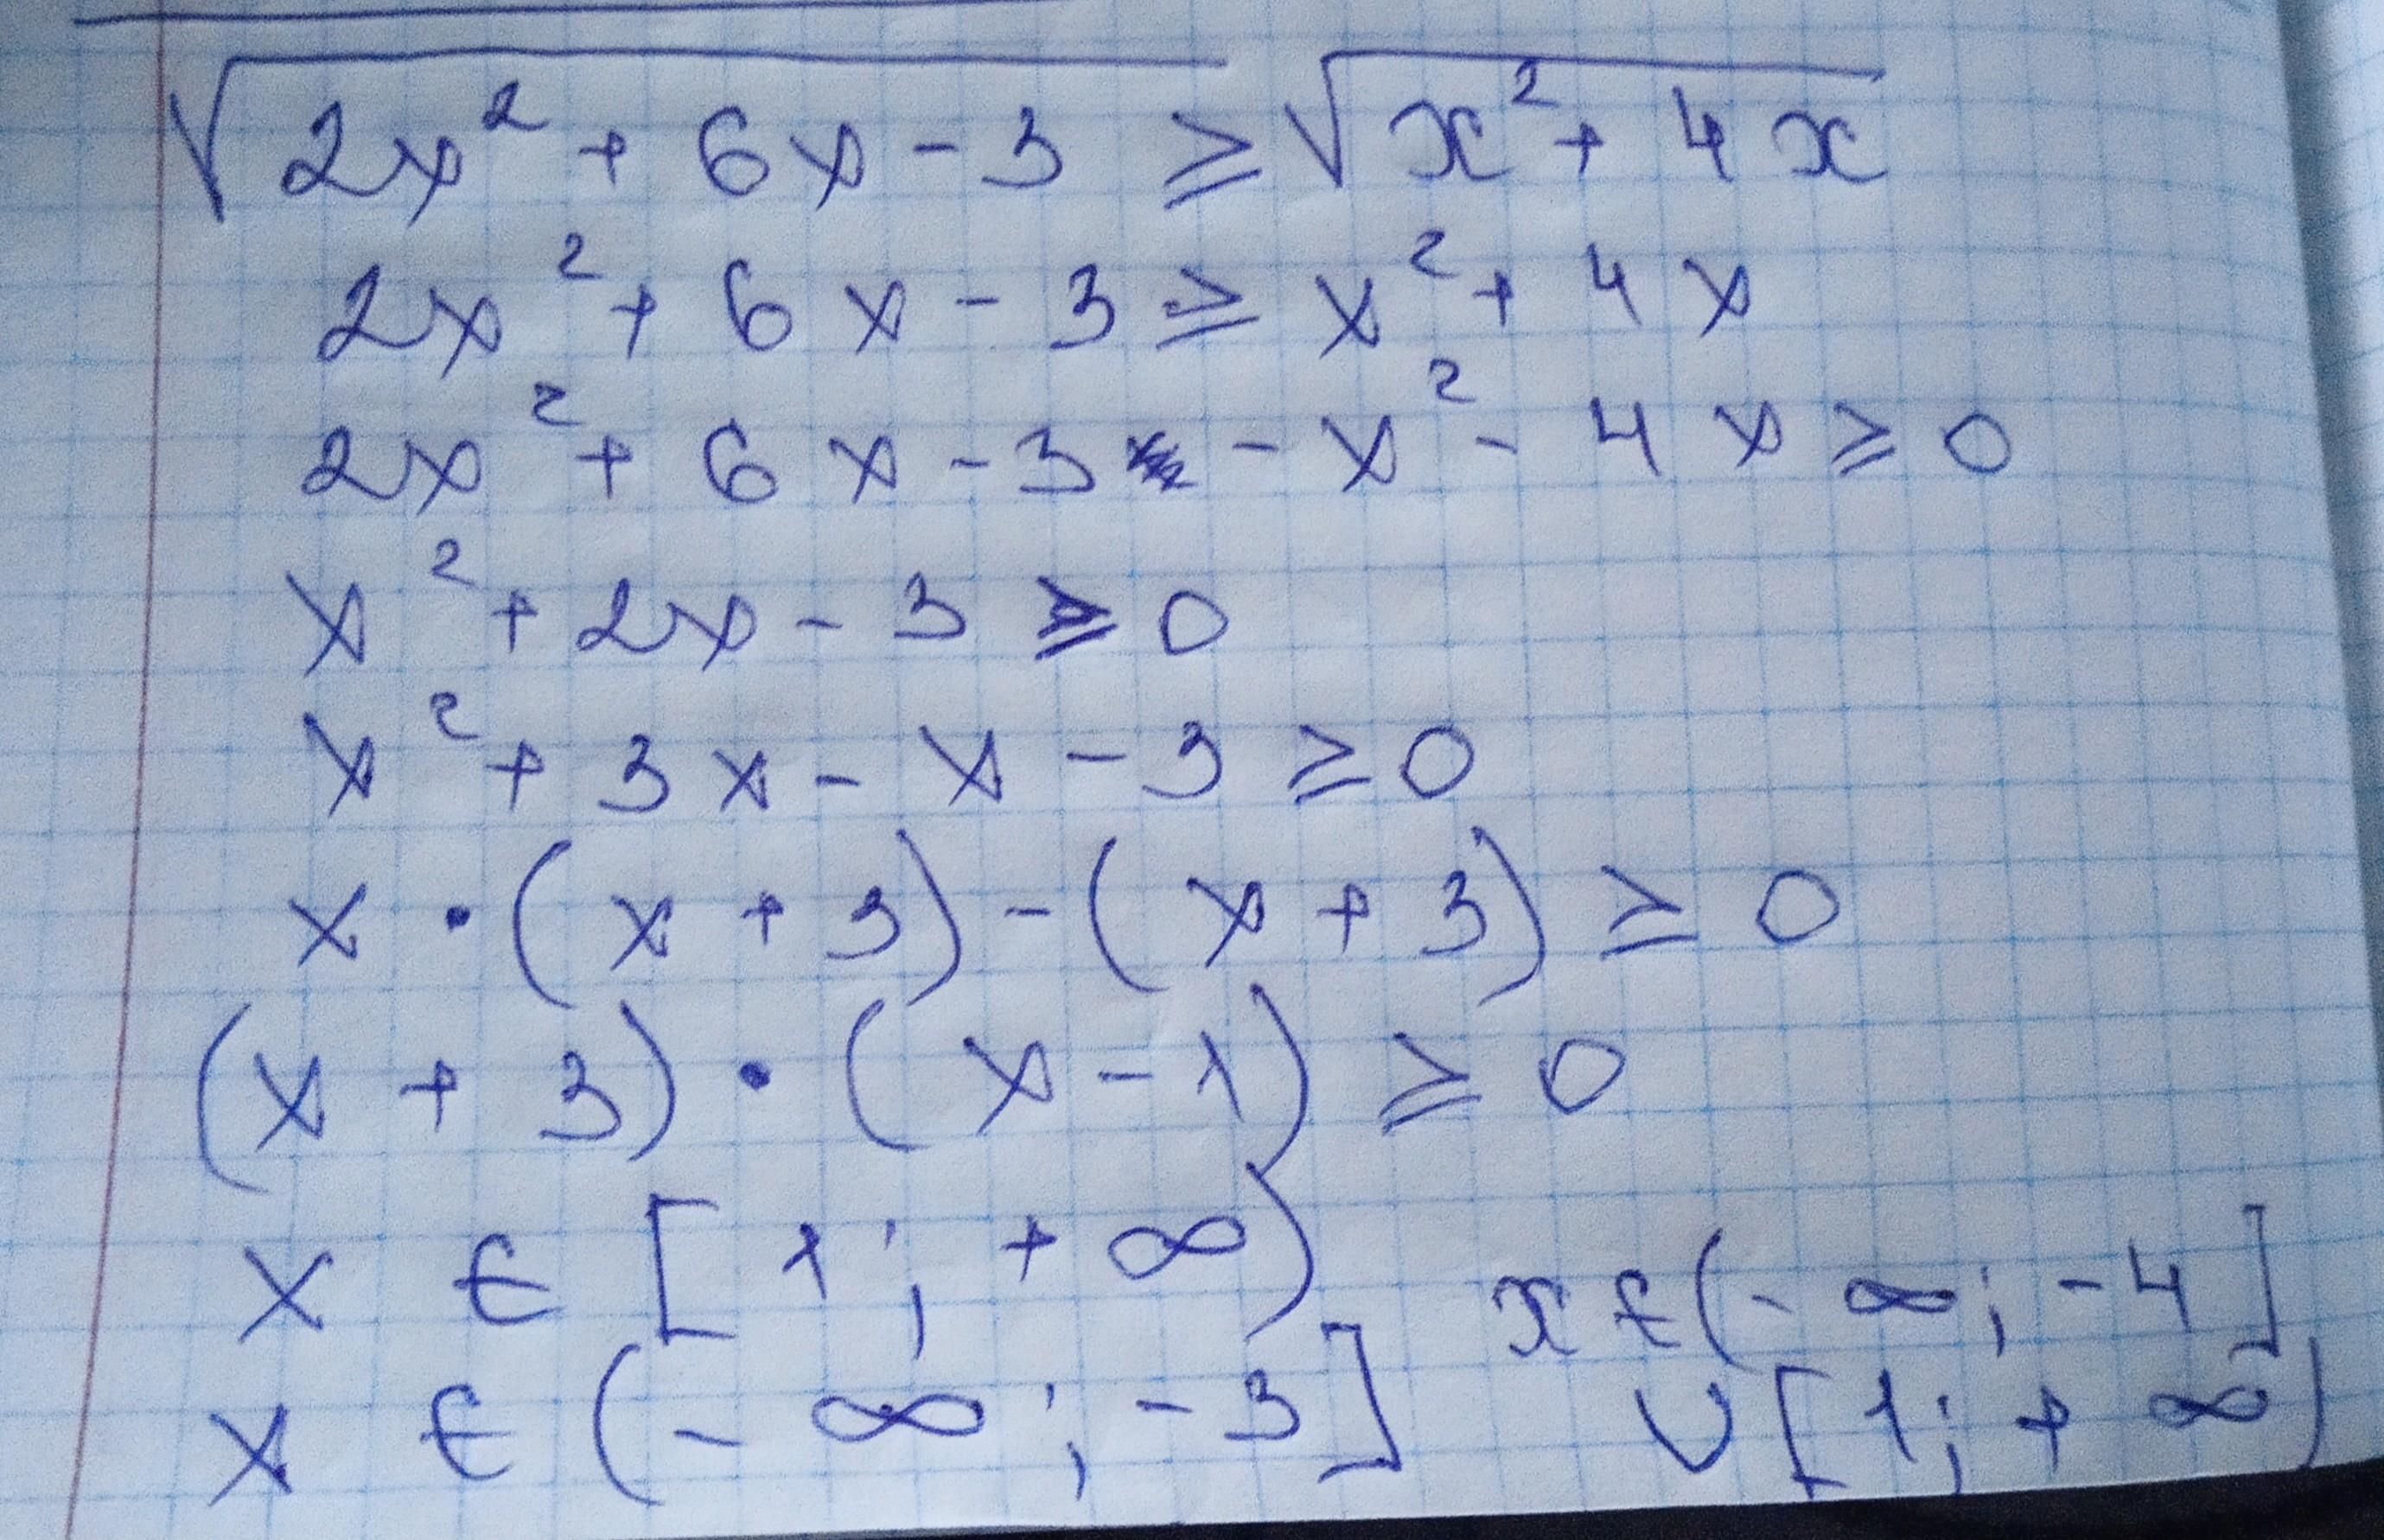 √(2x² + 6x - 3) ≥ √(x² + 4x)
2x² + 6x - 3 ≥ x² + 4x
2x² + 6x - 3 - x² - 4x ≥ 0
x² + 2x - 3 ≥ 0
x² + 3x - x - 3 ≥ 0
x · (x + 3) - (x + 3) ≥ 0
(x + 3) · (x - 1) ≥ 0
x ∈ [1; +∞)
x ∈ (-∞; -3]
x ∈ (-∞; -4]
∪ [1; +∞)